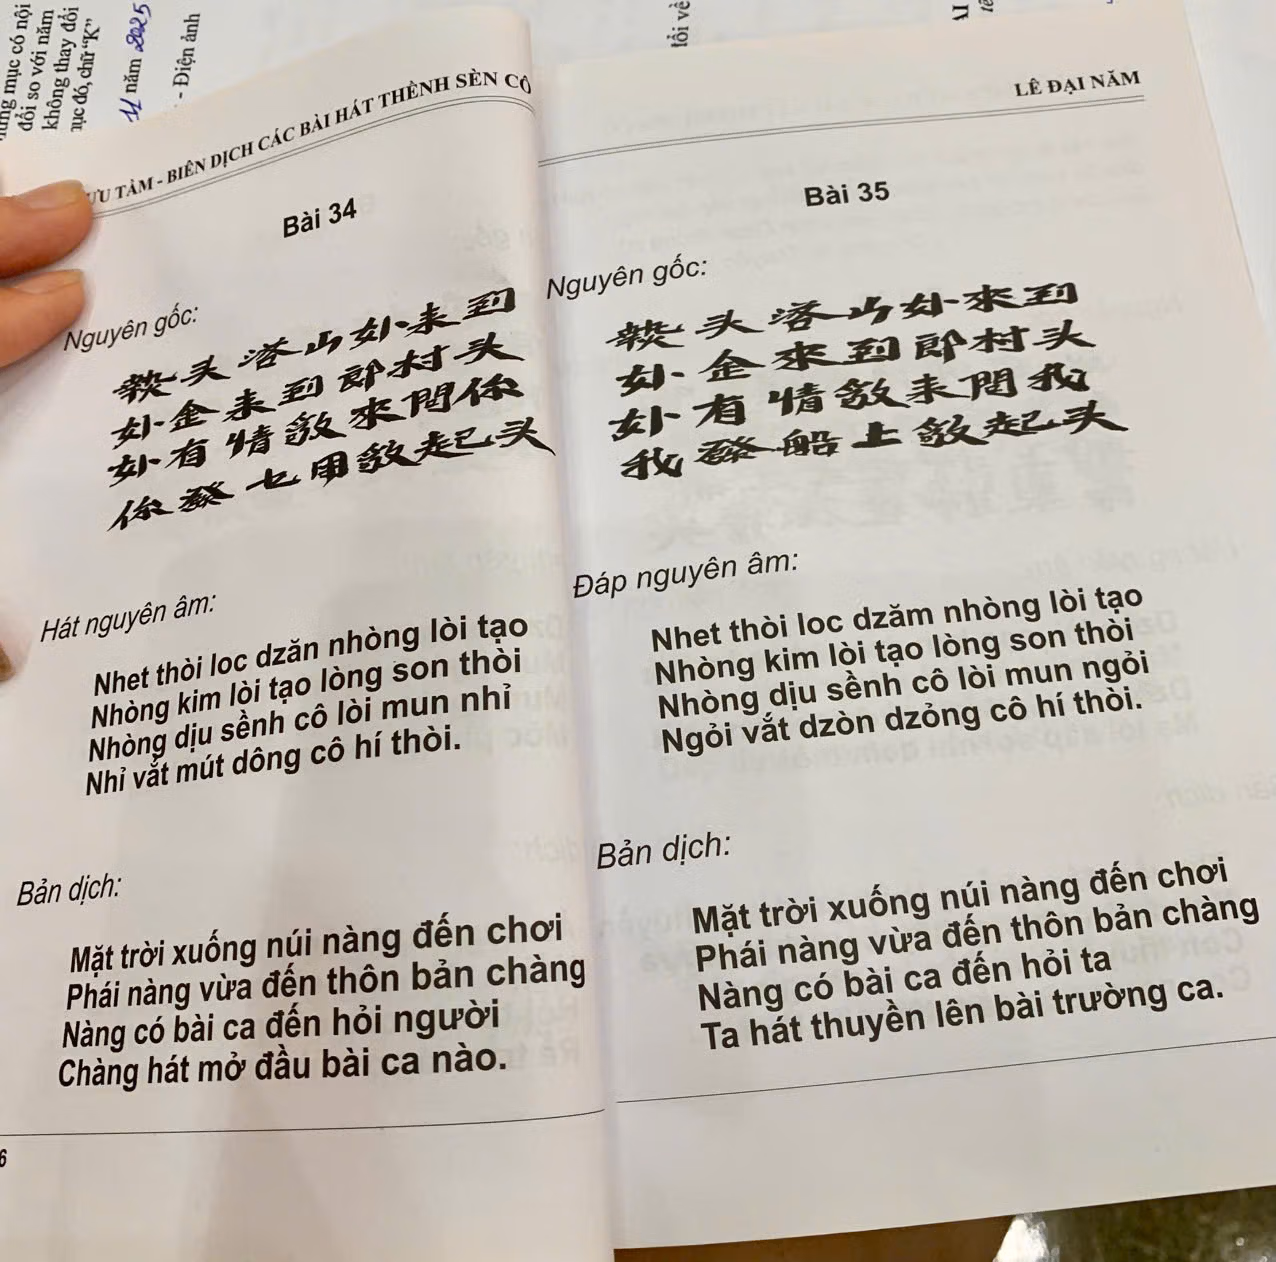 ững mục có nội
đổi so với năm
không thay đổi
mục đó, chữ “K”
11 năm 2025
- Điện ảnh
tồi về
ƯU TẦM - BIÊN DỊCH CÁC BÀI HÁT THỀNH SÈN CÔ
Bài 34
Nguyên gốc:
头 山 到
到 郎 村 头
有 情 來 問 你
你 發 七 用 起 头
Hát nguyên âm:
Nhet thòi loc dzăn nhòng lòi tạo
Nhòng kim lòi tạo lòng son thòi
Nhòng dịu sềnh cô lòi mun nhỉ
Nhỉ vắt mút dông cô hí thòi.
Bản dịch:
Mặt trời xuống núi nàng đến chơi
Phái nàng vừa đến thôn bản chàng
Nàng có bài ca đến hỏi người
Chàng hát mở đầu bài ca nào.
6
LÊ ĐẠI NĂM
Bài 35
Nguyên gốc:
头 山 來 到
來 到 郎 村 头
有 情 問 我
我 發 船 上 起 头
Đáp nguyên âm:
Nhet thòi loc dzăm nhòng lòi tạo
Nhòng kim lòi tạo lòng son thòi
Nhòng dịu sềnh cô lòi mun ngỏi
Ngỏi vắt dzòn dzỏng cô hí thòi.
Bản dịch:
Mặt trời xuống núi nàng đến chơi
Phái nàng vừa đến thôn bản chàng
Nàng có bài ca đến hỏi ta
Ta hát thuyền lên bài trường ca.